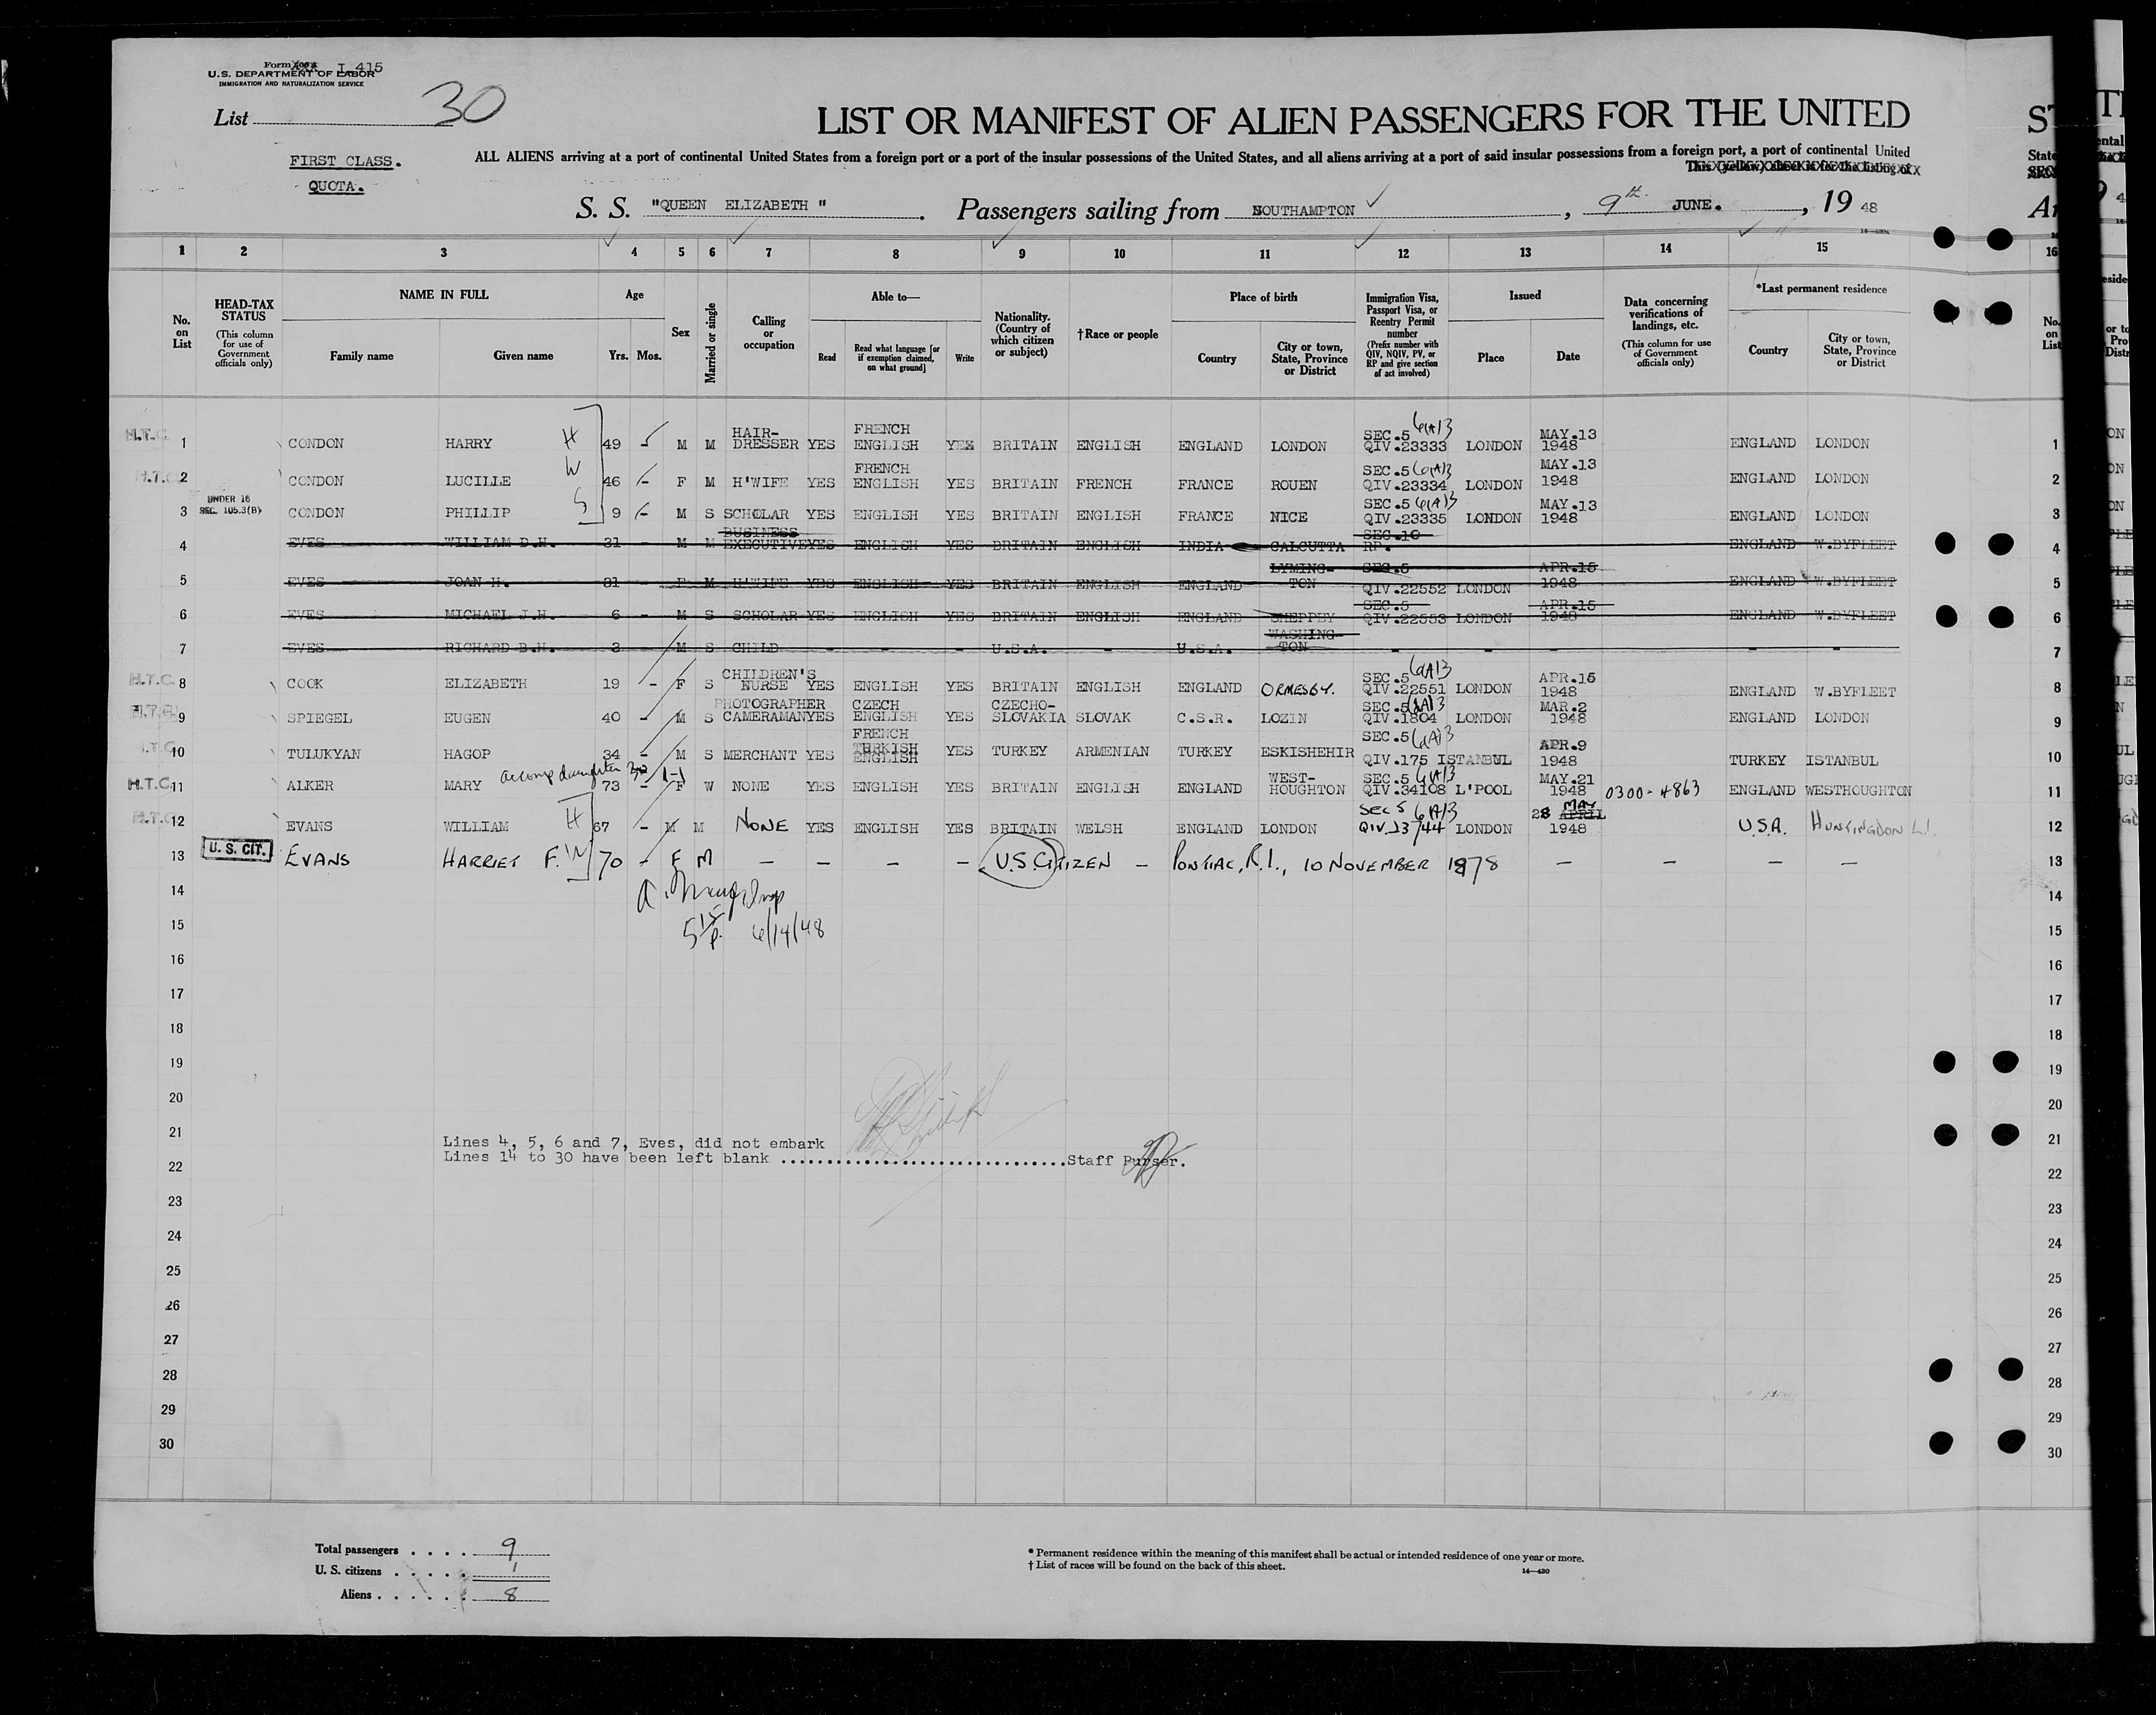 Form I 415
U.S. DEPARTMENT OF LABOR
IMMIGRATION AND NATURALIZATION SERVICE
List 30
LIST OR MANIFEST OF ALIEN PASSENGERS FOR THE UNITED
FIRST CLASS.
QUOTA.
ALL ALIENS arriving at a port of continental United States from a foreign port or a port of the insular possessions of the United States, and all aliens arriving at a port of said insular possessions from a foreign port, a port of continental United
This (yellow) sheet is for the listing of
S. S. "QUEEN ELIZABETH". Passengers sailing from SOUTHAMPTON, 9th. JUNE., 19 48
1 2 3 4 5 6 7 8 9 10 11 12 13 14 15 16
No. on List
HEAD-TAX STATUS (This column for use of Government officials only)
NAME IN FULL Family name Given name
Age Yrs. Mos.
Sex
Married or single
Calling or occupation
Able to— Read Read what language [or if exemption claimed, on what ground] Write
Nationality. (Country of which citizen or subject)
†Race or people
Place of birth Country City or town, State, Province or District
Immigration Visa, Passport Visa, or Reentry Permit number (Prefix number with QIV, NQIV, PV, or RP and give section of act involved)
Issued Place Date
Data concerning verifications of landings, etc. (This column for use of Government officials only)
*Last permanent residence Country City or town, State, Province or District
H.T.C. 1 CONDON HARRY H 49 - M M HAIR-DRESSER YES FRENCH ENGLISH YES BRITAIN ENGLISH ENGLAND LONDON SEC.5 6(A)3 QIV.23333 LONDON MAY.13 1948 ENGLAND LONDON 1
H.T.C. 2 CONDON LUCILLE W 46 - F M H'WIFE YES FRENCH ENGLISH YES BRITAIN FRENCH FRANCE ROUEN SEC.5 6(A)3 QIV.23334 LONDON MAY.13 1948 ENGLAND LONDON 2
3 UNDER 16 SEC. 105.3(B) CONDON PHILLIP S 9 - M S SCHOLAR YES ENGLISH YES BRITAIN ENGLISH FRANCE NICE SEC.5 6(A)3 QIV.23335 LONDON MAY.13 1948 ENGLAND LONDON 3
4 EVES WILLIAM D.H. 31 - M M BUSINESS EXECUTIVE YES ENGLISH YES BRITAIN ENGLISH INDIA CALCUTTA SEC.10 RP. ENGLAND W.BYFLEET 4
5 EVES JOAN H. 31 - F M H'WIFE YES ENGLISH YES BRITAIN ENGLISH ENGLAND LYMING-TON SEC.5 QIV.22552 LONDON APR.15 1948 ENGLAND W.BYFLEET 5
6 EVES MICHAEL J.H. 6 - M S SCHOLAR YES ENGLISH YES BRITAIN ENGLISH ENGLAND SHEPPEY SEC.5 QIV.22553 LONDON APR.15 1948 ENGLAND W.BYFLEET 6
7 EVES RICHARD B.H. 3 - M S CHILD - - - U.S.A. - U.S.A. WASHING-TON - - - - - 7
H.T.C. 8 COOK ELIZABETH 19 - F S CHILDREN'S NURSE YES ENGLISH YES BRITAIN ENGLISH ENGLAND ORMESBY. SEC.5 6(A)3 QIV.22551 LONDON APR.15 1948 ENGLAND W.BYFLEET 8
H.T.C. 9 SPIEGEL EUGEN 40 - M S PHOTOGRAPHER CAMERAMAN YES CZECH ENGLISH YES CZECHO-SLOVAKIA SLOVAK C.S.R. LOZIN SEC.5 6(A)3 QIV.1804 LONDON MAR.2 1948 ENGLAND LONDON 9
H.T.C. 10 TULUKYAN HAGOP 34 - M S MERCHANT YES FRENCH TURKISH ENGLISH YES TURKEY ARMENIAN TURKEY ESKISHEHIR SEC.5 6(A)3 QIV.175 ISTANBUL APR.9 1948 TURKEY ISTANBUL 10
H.T.C. 11 ALKER MARY accomp daughter 73 - F W NONE YES ENGLISH YES BRITAIN ENGLISH ENGLAND WEST-HOUGHTON SEC.5 6(A)3 QIV.34108 L'POOL MAY.21 1948 0300-4863 ENGLAND WESTHOUGHTON 11
H.T.C. 12 EVANS WILLIAM H 67 - M M NONE YES ENGLISH YES BRITAIN WELSH ENGLAND LONDON SEC 5 6(A)3 QIV.23744 LONDON 28 MAY APRIL 1948 U.S.A. HUNTINGDON L.I. 12
13 U. S. CIT. EVANS HARRIET F. W 70 - F M - - - - U.S. CITIZEN - PONTIAC, R.I., 10 NOVEMBER 1878 - - - - 13
5 15 P. 6/14/48
14 14
15 15
16 16
17 17
18 18
19 19
20 20
21 21
22 22
Lines 4, 5, 6 and 7, Eves, did not embark
Lines 14 to 30 have been left blank ..............................Staff Purser.
23 23
24 24
25 25
26 26
27 27
28 28
29 29
30 30
Total passengers . . . . 9
U. S. citizens . . . . . 1
Aliens . . . . . . 8
* Permanent residence within the meaning of this manifest shall be actual or intended residence of one year or more.
† List of races will be found on the back of this sheet.
14—430